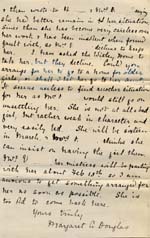 then wrote to B Mrs B says
she had better remain in her situation
since then she has become very careless in
her work & has been insolent when found
fault with, so Mrs B declines to keep
her. I have asked the Waifs Home to
take her, but they decline. Could you
arrange for her to go to a home for older
girls
It seems useless to find another situation
for her as Mrs would still go on
unsettling her. She is not at all a bad
girl, but rather weak in character and
very easily led. She will be sixteen
in March. Mrs B thinks she
can insist on having the girl then.
Mrs B her mistress will in parting
with her about Feb 10th so I am
anxious to get something arranged for
her as soon as possible. She is
too old to come back here.
Yours truly,
Margaret E. Douglas